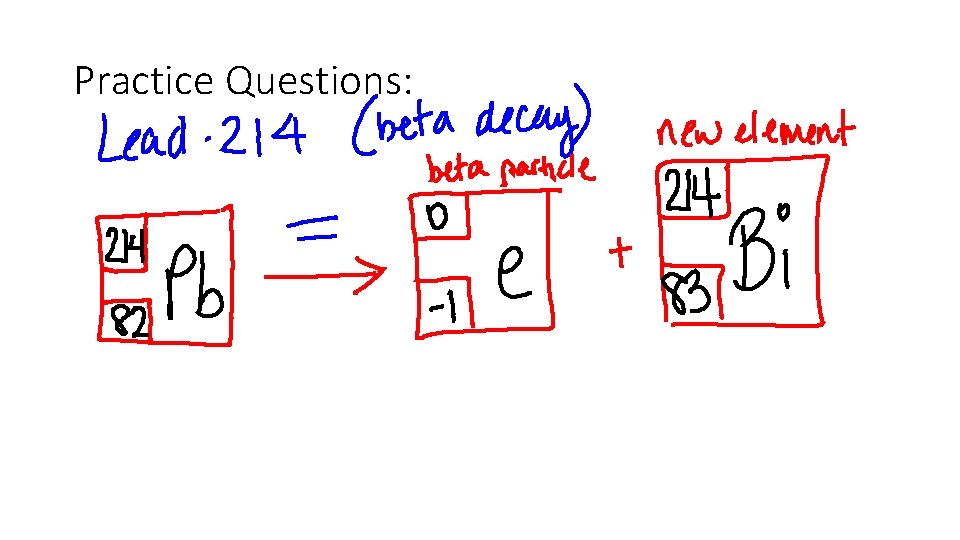 Practice Questions:
Lead-214 (beta decay)
beta particle
new element
214
82
Pb
=
0
-1
e
+
214
83
Bi